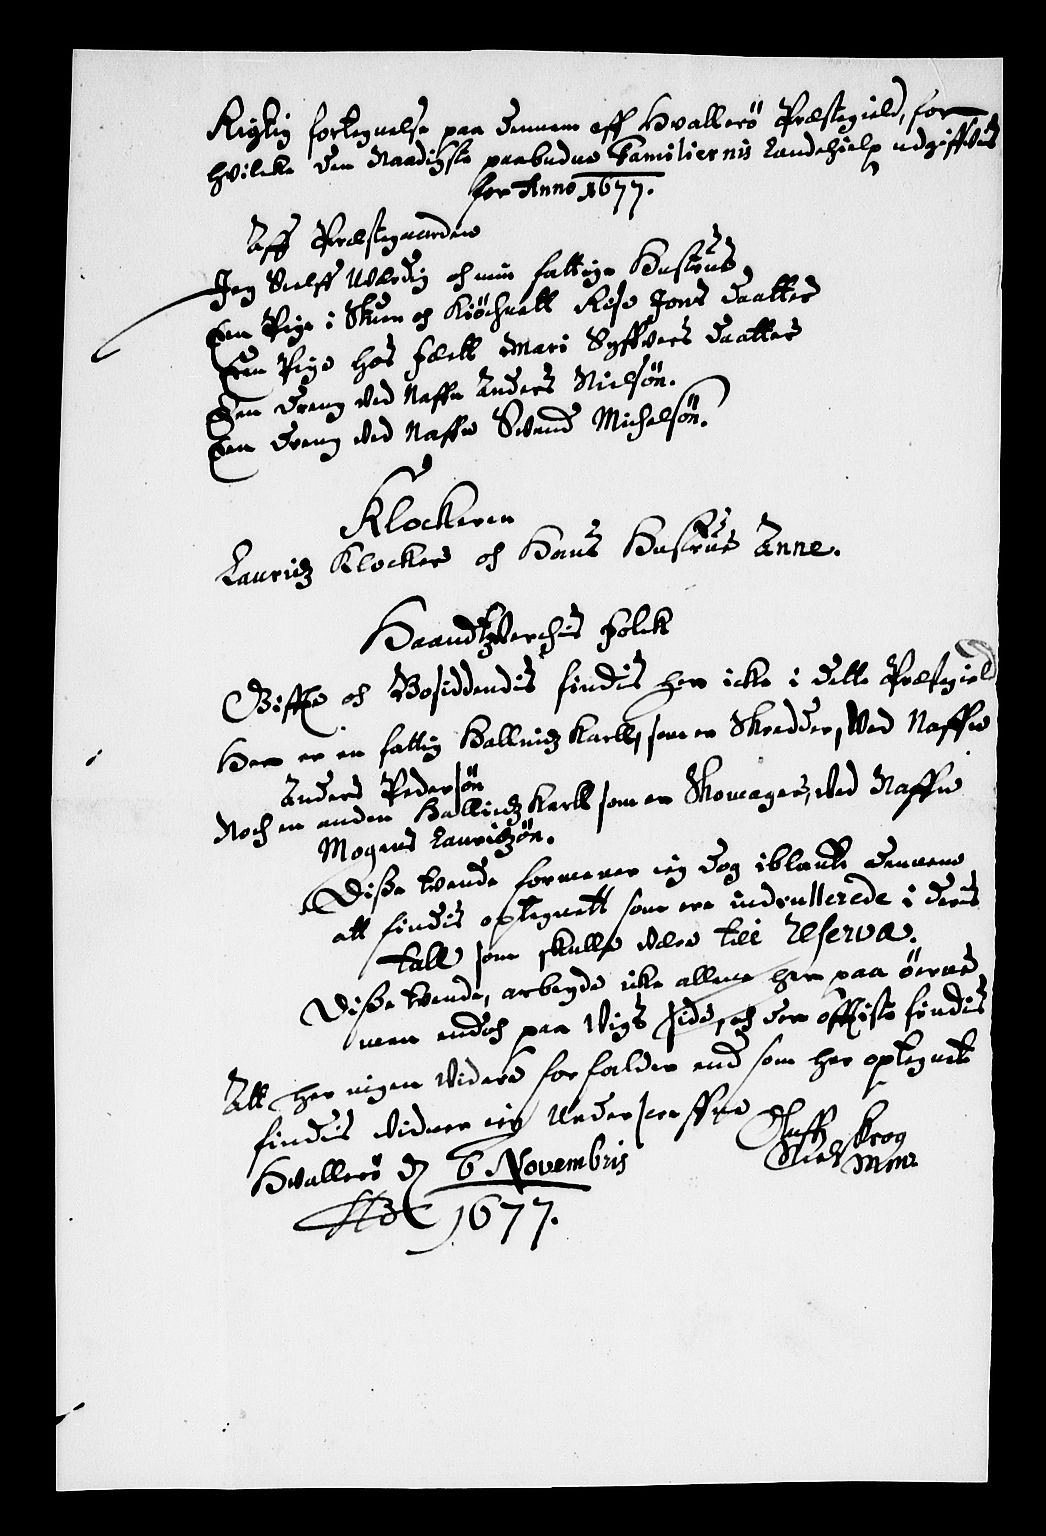 Rigtig fortegnelse paa dennem aff Hvallerö Præstegield, for
hvilcke den Naadigste paabudne Familiernis Landehielp udgiffves
for Anno 1677.
Aff Præstegaarden
Jeg Sielff Uværdig och min fattige Hustrue
Een Pige i Stuen och Kiöchnett Rise Jons daatter
Een Pige hos fæett Mari Syffvers daatter
Een dreng ved Naffn Anders Nielsön.
Een dreng ved Naffn Svend Michelsön.
Klockeren
Lauridz Klocker och Hans Hustrue Anne.
Haandtverchis folck
Giffte och Bosiddendis findis her icke i dette Præstegield
Her er en fattig Hallindz Karll, som er Skredder, Ved Naffn
Anders Pedersön
Noch en anden Hallindz Karll som er Skomager, ved Naffn
Mogens Lauridzön.
Disse tvende formener ieg dog iblant dennem
att findis optegnett som ere indrullerede i deris
tall som skulle være till Reserva.
Disse tvende, arbeyde icke allene her paa öerne,
men endoch paa Vigs side, och der offtiste findis
Att her ingen videre forfalder end som her optegnett
findis vidner ieg underschreffne
Hvallerö d 6 Novembris
1677.
Oluff Nielss Krog